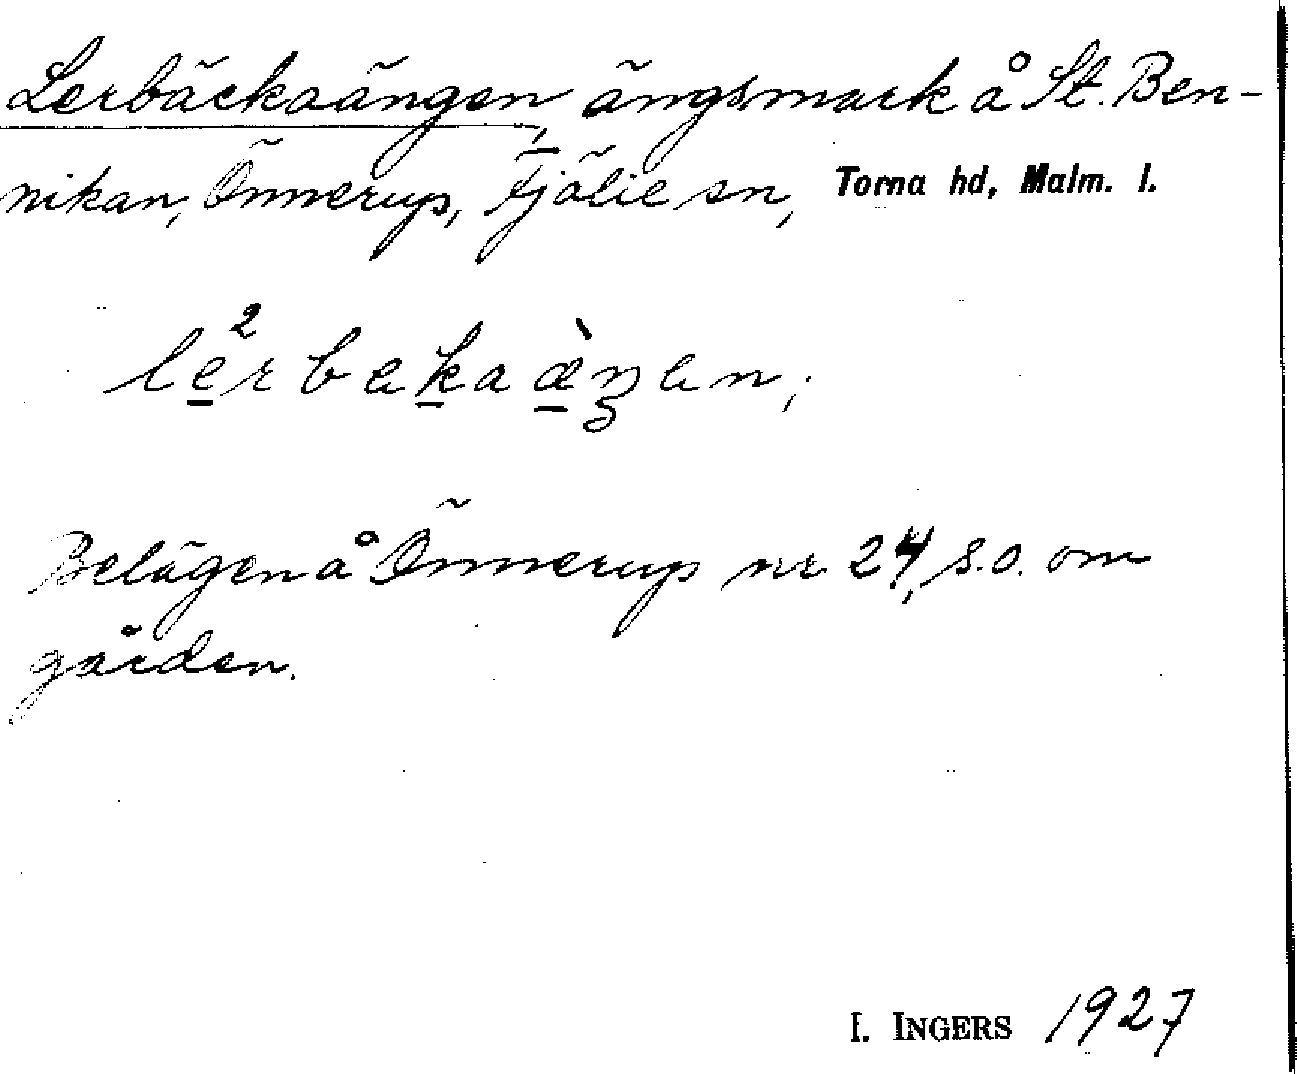 Lerbäckaängen, ängsmark å St. Ben-
nikan, Önnerup, Fjälie sn, Torna hd, Malm. l.
le²rbekaæ̀ŋen;
Belägen å Önnerup nr 24, s.o. om
gården.
I. INGERS 1927